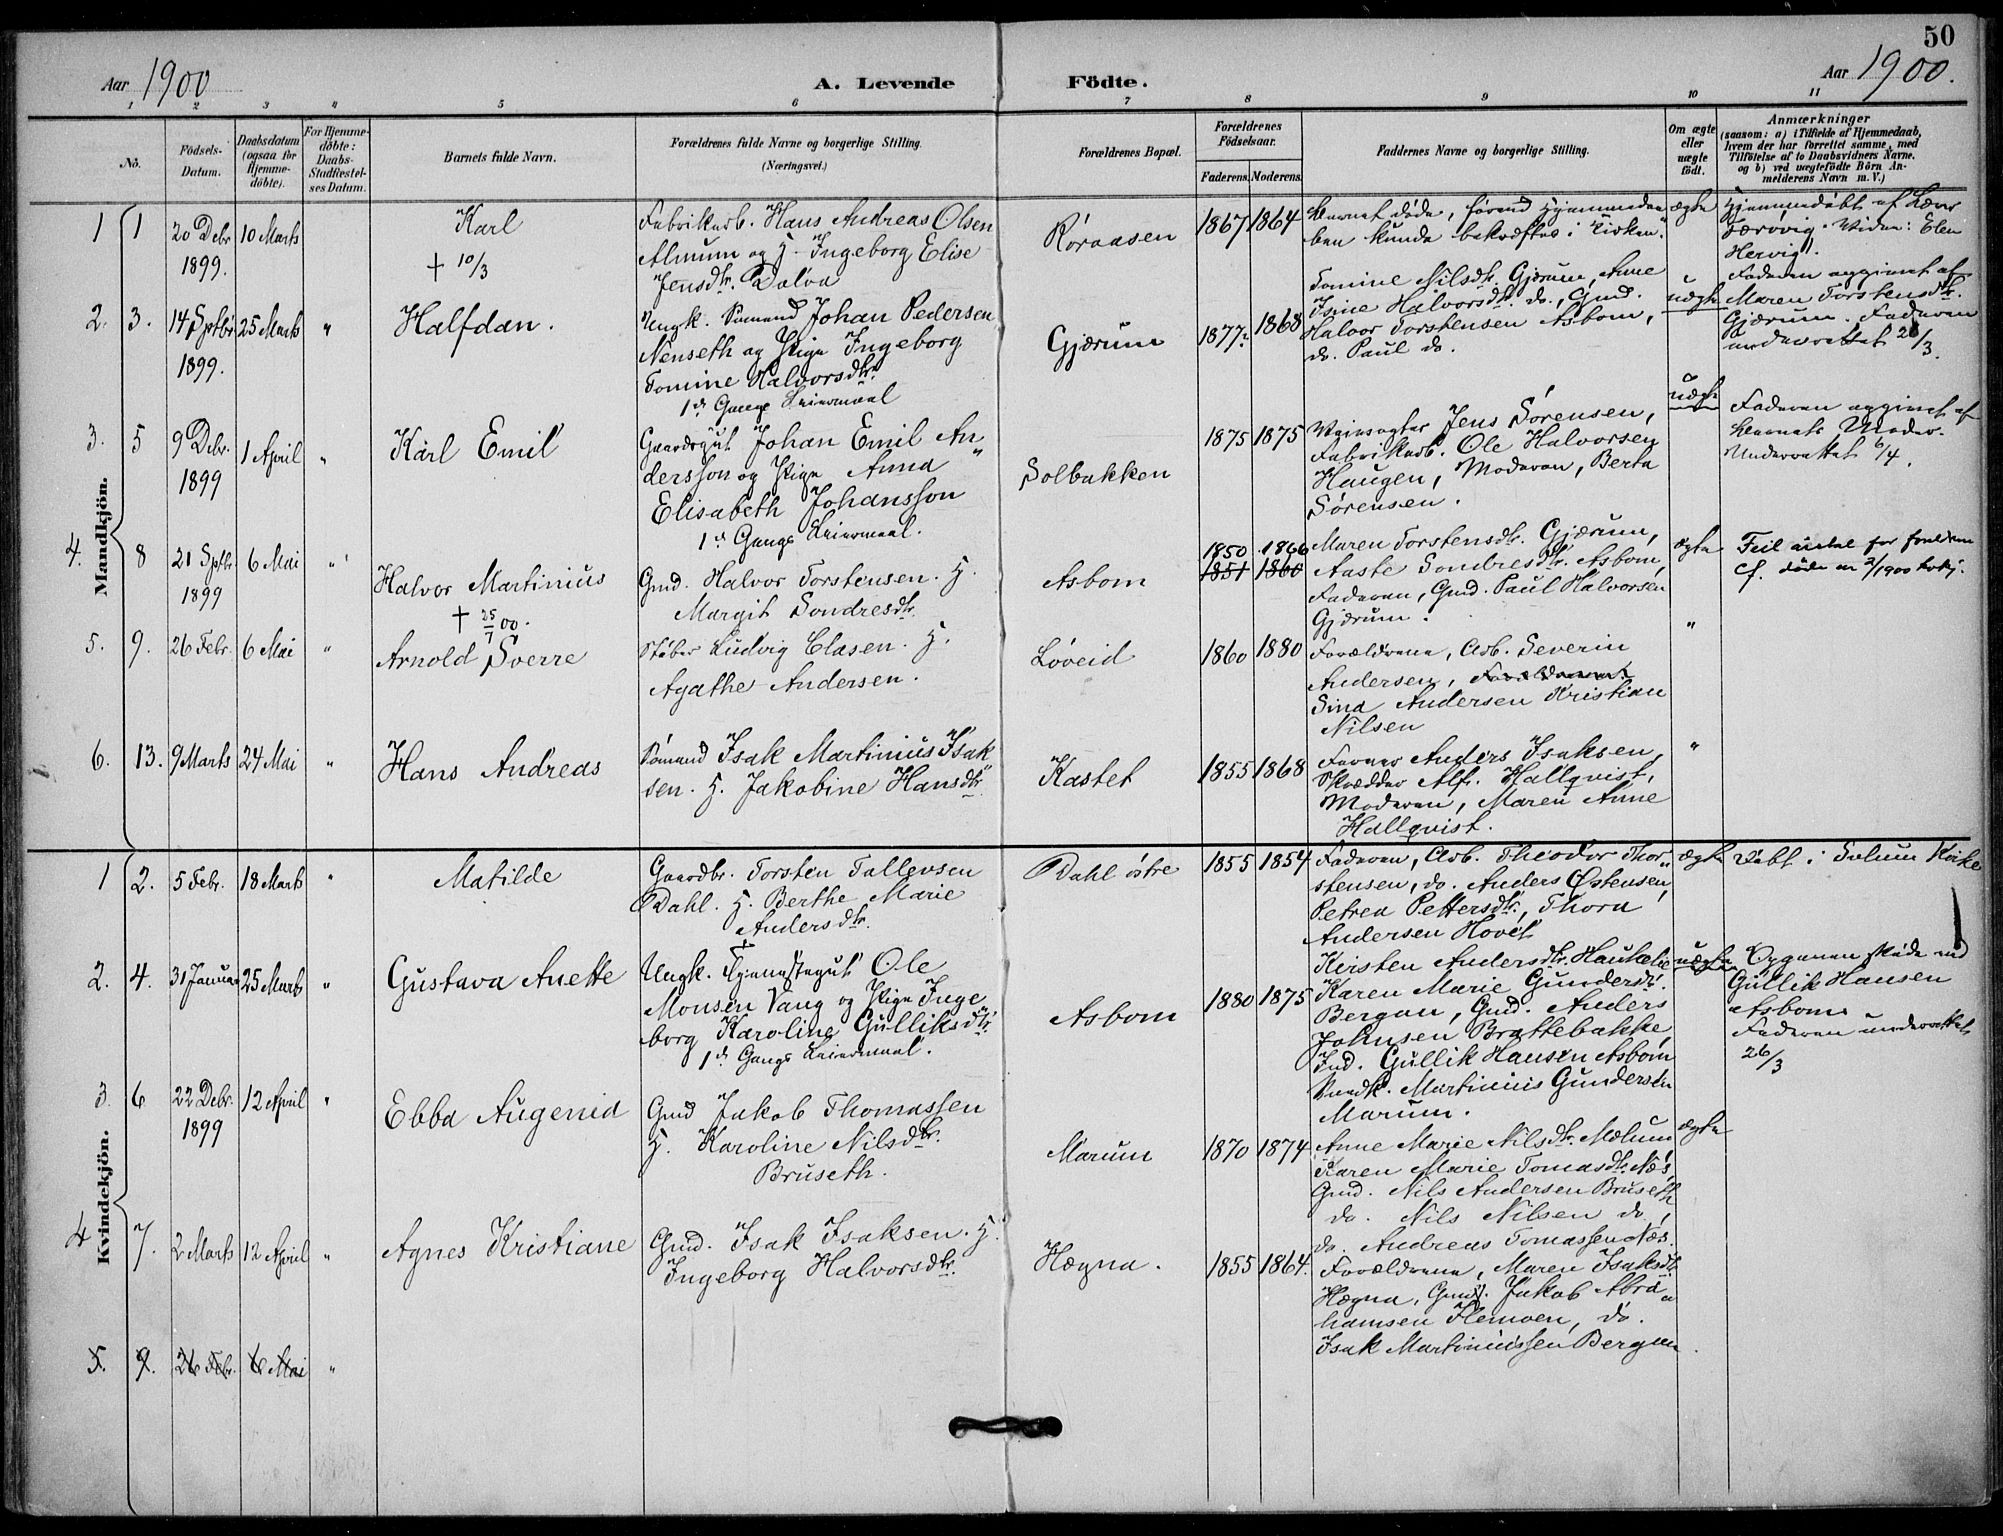 50
Aar 1900
A. Levende Födte.
Aar 1900.
1 2 3 4 5 6 7 8 9 10 11
No.
Födsels-Datum.
Daabsdatum (ogsaa for Hjemme-döbte).
For Hjemme-döbte: Daabs-Stadfæstel-ses Datum.
Barnets fulde Navn.
Forældrenes fulde Navne og borgerlige Stilling.
(Næringsvei.)
Forældrenes Bopæl.
Forældrenes Födselsaar.
Faderens. Moderens.
Faddernes Navne og borgerlige Stilling.
Om ægte eller uægte födt.
Anmærkninger
(saasom: a) i Tilfælde af Hjemmedaab, hvem der har forrettet samme, med Tilföielse af to Daabsvidners Navne, og b) ved uægtefödte Börn An-melderens Navn m. V.)
Mandkjön.
1 1 20 Debr 1899. 10 Marts
Karl
† 10/3
Fabrikarb. Hans Andreas Olsen
Almum og H. Ingeborg Elise
Jensdtr. Dalva
Røraasen
1867 1864
Barnet døde, førend Hjemmedaa
ben kunde bekræftes i Kirken.
ægte
Hjemmedøbt af
2. 3. 14 Sptbr 1899. 25 Marts "
Halfdan.
Ungk. Sømand Johan Pedersen
Nenseth og Pige Ingeborg
Tomine Halvorsdtr.
1ste Gangs Leiermaal
Gjærum
1877. 1868
Tomine Nilsdtr. Gjærum, Anne
Isine Halvorsdtr. do., Gmd.
Halvor Torstensen Asbom,
do. Paul do.
uægte
Faderen opgivet af
Maren Torstensdtr.
Gjærum. Faderen
underrettet 26/3.
3. 5 9 Debr. 1899 1 April "
Karl Emil
Gaardsgut Johan Emil An
dersson og Pige Anna
Elisabeth Johansson
1ste Gangs Leiermaal.
Solbakken
1875 1875
Veivogter Jens Sørensen,
Fabrikarb. Ole Halvorsen
Haugen, Moderen, Berta
Sørensen.
uægte
Faderen opgivet af
Barnets Moder.
Underrettet 6/4.
4. 8 21 Sptbr. 1899 6 Mai "
Halvor Martinius
† 25/7 00.
Gmd. Halvor Torstensen. H.
Margit Sondresdtr.
Asbom
1850 1866
1851 1860
Maren Torstensdtr. Gjærum,
Aaste Sondresdtr. Asbom,
Faderen, Gmd. Paul Halvorsen
Gjærum.
ægte
Feil
5. 9. 26 Febr. 6 Mai "
Arnold Sverre
Støber Ludvig Clasen. H.
Agathe Andersen.
Løveid
1860 1880
Forældrene, Arb. Severin
Andersen,
Sina Andersen Kristian
Nilsen
"
6. 13. 9 Marts 24 Mai "
Hans Andreas
Sømand Isak Martinius Isak
sen. H. Jakobine Hansdtr.
Kastet
1855 1868
Anders Isaksen,
Skrædder Alf. Hallqvist,
Moderen, Maren Anne
Hallqvist.
"
Kvindekjön.
1 2. 5 Febr. 18 Marts "
Matilde
Gaardbr. Torsten Tallevsen
Dahl. H. Berthe Marie
Andersdtr.
Dahl østre
1855 1854
Faderen, Arb. Theodor Thor
stensen, do. Anders Østensen,
Petrea Pettersdtr., Thora
Andersen Hovet
ægte
Døbt i Solum Kirke
2. 4. 31 Januar 25 Marts "
Gustava Anette
Ungk. Tjenestegut Ole
Monsen Vang og Pige Inge
borg Karoline Gulliksdtr.
1ste Gangs Leiermaal.
Asbom
1880 1875
Kirsten Andersdtr. Haukelie
Karen Marie Gundersdtr.
Bergan, Gmd. Anders
Johnsen Brattebakke,
Ind. Gullik Hansen Asbom
Ungk. Martinius Gundersen
Marum.
uægte
Gullik Hansen
Asbom.
Faderen underrettet
26/3
3. 6 22 Debr. 1899 12 April "
Ebba Augenia
Gmd Jakob Thomassen
H. Karoline Nilsdtr.
Bruseth.
Marum
1870 1874
Anne Marie Nilsdtr. Mælum
Karen Marie Tomasdtr. Næs,
Gmd. Nils Andersen Bruseth
do. Nils Nilsen do,
do. Andreas Tomassen Næs.
ægte
4 7. 2 Marts 12 April "
Agnes Kristiane
Gmd. Isak Isaksen. H.
Ingeborg Halvorsdtr.
Hægna.
1855 1864.
Forældrene, Maren Isaksdtr.
Hægna, Gmd. Jakob Abra
hamsen Flemoen, do.
Isak Martinussen Bergan.
5. 9. 26 Febr. 6 Mai "